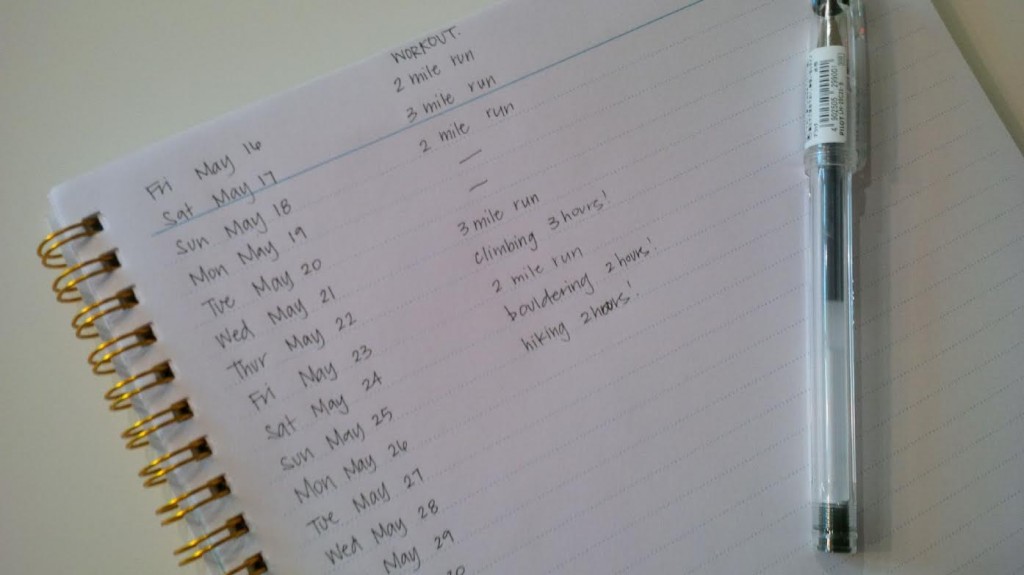 WORKOUT:
Fri May 16 2 mile run
Sat May 17 3 mile run
Sun May 18 2 mile run
Mon May 19 —
Tue May 20 —
Wed May 21 3 mile run
Thur May 22 climbing 3 hours!
Fri May 23 2 mile run
Sat May 24 bouldering 2 hours!
Sun May 25 hiking 2 hours!
Mon May 26
Tue May 27
Wed May 28
May 29